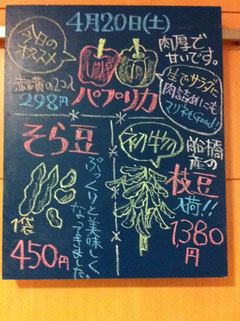 4月20日(土)
今日の
オススメ
肉厚で
甘いです。
生でサラダに
肉詰めにも
赤・黄の2コ入
298円
パプリカ
そら豆
ぷっくりと美味しく
なってきました。
1袋
450円
初モノ
船橋
産の
枝豆
入荷!!
1,380
円